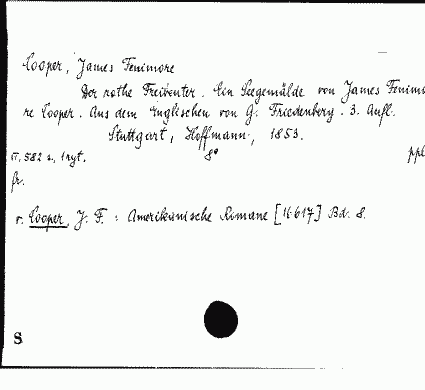 Cooper, James Fenimore
Der rothe Freibeuter. Ein Seegemälde von James Fenimo
re Cooper. Aus dem Englischen von G. Friedenberg. 3. Aufl.
Stuttgart, Hoffmann, 1853.
582 s., 1 ryt. 8° ppl
fr.
v. Cooper, J. F. : Amerikanische Romane [16617] Bd. 8.
S